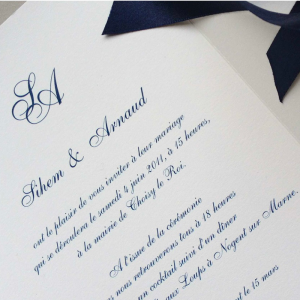 SA
Sihem & Arnaud
ont le plaisir de vous inviter à leur mariage
qui se déroulera le samedi 4 juin 2011, à 15 heures,
à la mairie de Choisy le Roi.
A l'issue de la cérémonie
nous retrouverons tous à 18 heures
un cocktail suivi d'un dîner
aux Loups à Nogent sur Marne.
t le 15 mars